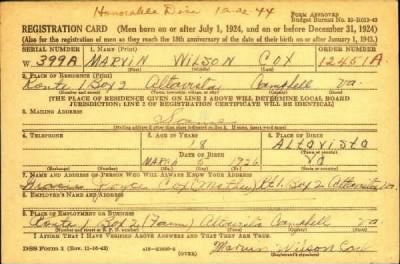 Honorable Disc 10-22-44
Form Approved
Budget Bureau No.
REGISTRATION CARD (Men born on or after July 1, 1924, and on or before December 31, 1924)
(Also for the registration of men as they reach the 18th anniversary of the date of their birth on or after January 1, 1943.)
SERIAL NUMBER 1. NAME (Print) ORDER NUMBER
W. 399A MARVIN WILSON COX 12451A
(First) (Middle) (Last)
2. PLACE OF RESIDENCE (Print)
Route 1 Box 2 Altavista Campbell Va.
(Number and street) (Town, township, village, or city) (County) (State)
[THE PLACE OF RESIDENCE GIVEN ON LINE 2 ABOVE WILL DETERMINE LOCAL BOARD
JURISDICTION; LINE 2 OF REGISTRATION CERTIFICATE WILL BE IDENTICAL]
3. MAILING ADDRESS
Same
[Mailing address if other than place indicated on line 2. If same, insert word same]
4. TELEPHONE 5. AGE IN YEARS 6. PLACE OF BIRTH
18 Altavista
DATE OF BIRTH
March 5 1926 Va
(Exchange) (Number) (Mo.) (Day) (Yr.) (State or country)
7. NAME AND ADDRESS OF PERSON WHO WILL ALWAYS KNOW YOUR ADDRESS
Cox (Mother) Rt. 1 Box 2 Altavista, Va.
8. EMPLOYER'S NAME AND ADDRESS
9. PLACE OF EMPLOYMENT OR BUSINESS
Route 1 Box 2 (Farm) Altavista Campbell Va.
(Number and street or R. F. D. number) (Town) (County) (State)
I AFFIRM THAT I HAVE VERIFIED ABOVE ANSWERS AND THAT THEY ARE TRUE.
DSS Form 1 (Rev. 11-16-42) (OVER) Marvin Wilson Cox